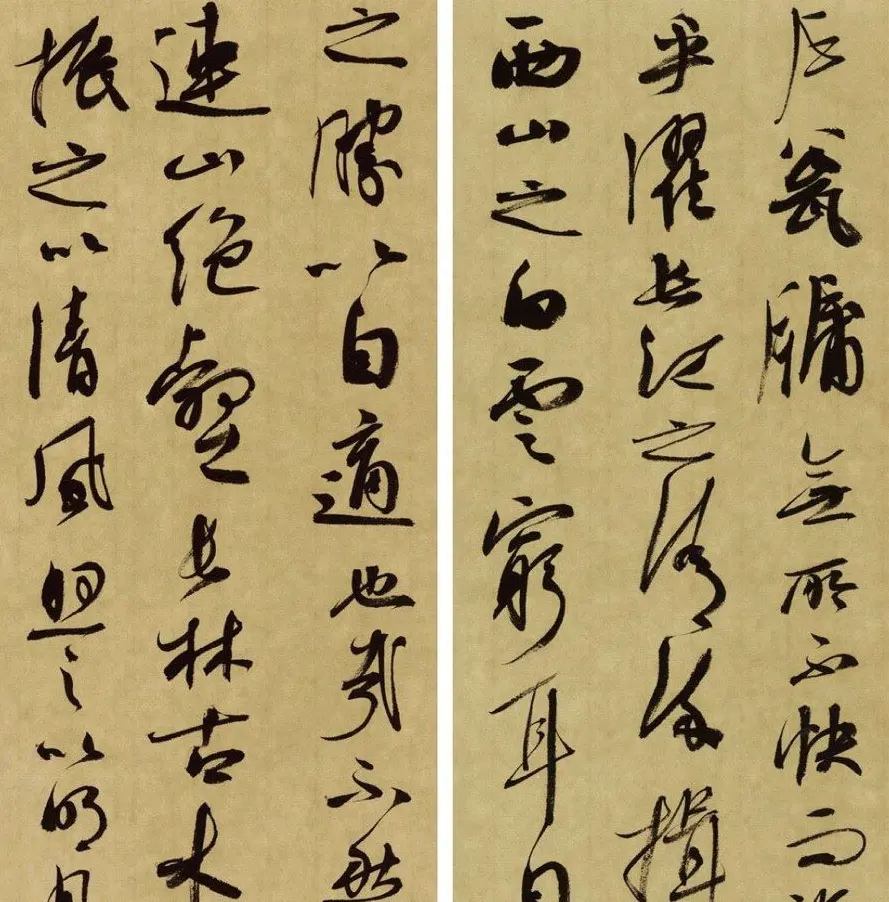 戶瓮牖無所不快而
乎濯長江之清流揖
西山之白雲窮耳目
之勝以自適也哉不然
連山絕壑長林古木
振之以清風照之以明月